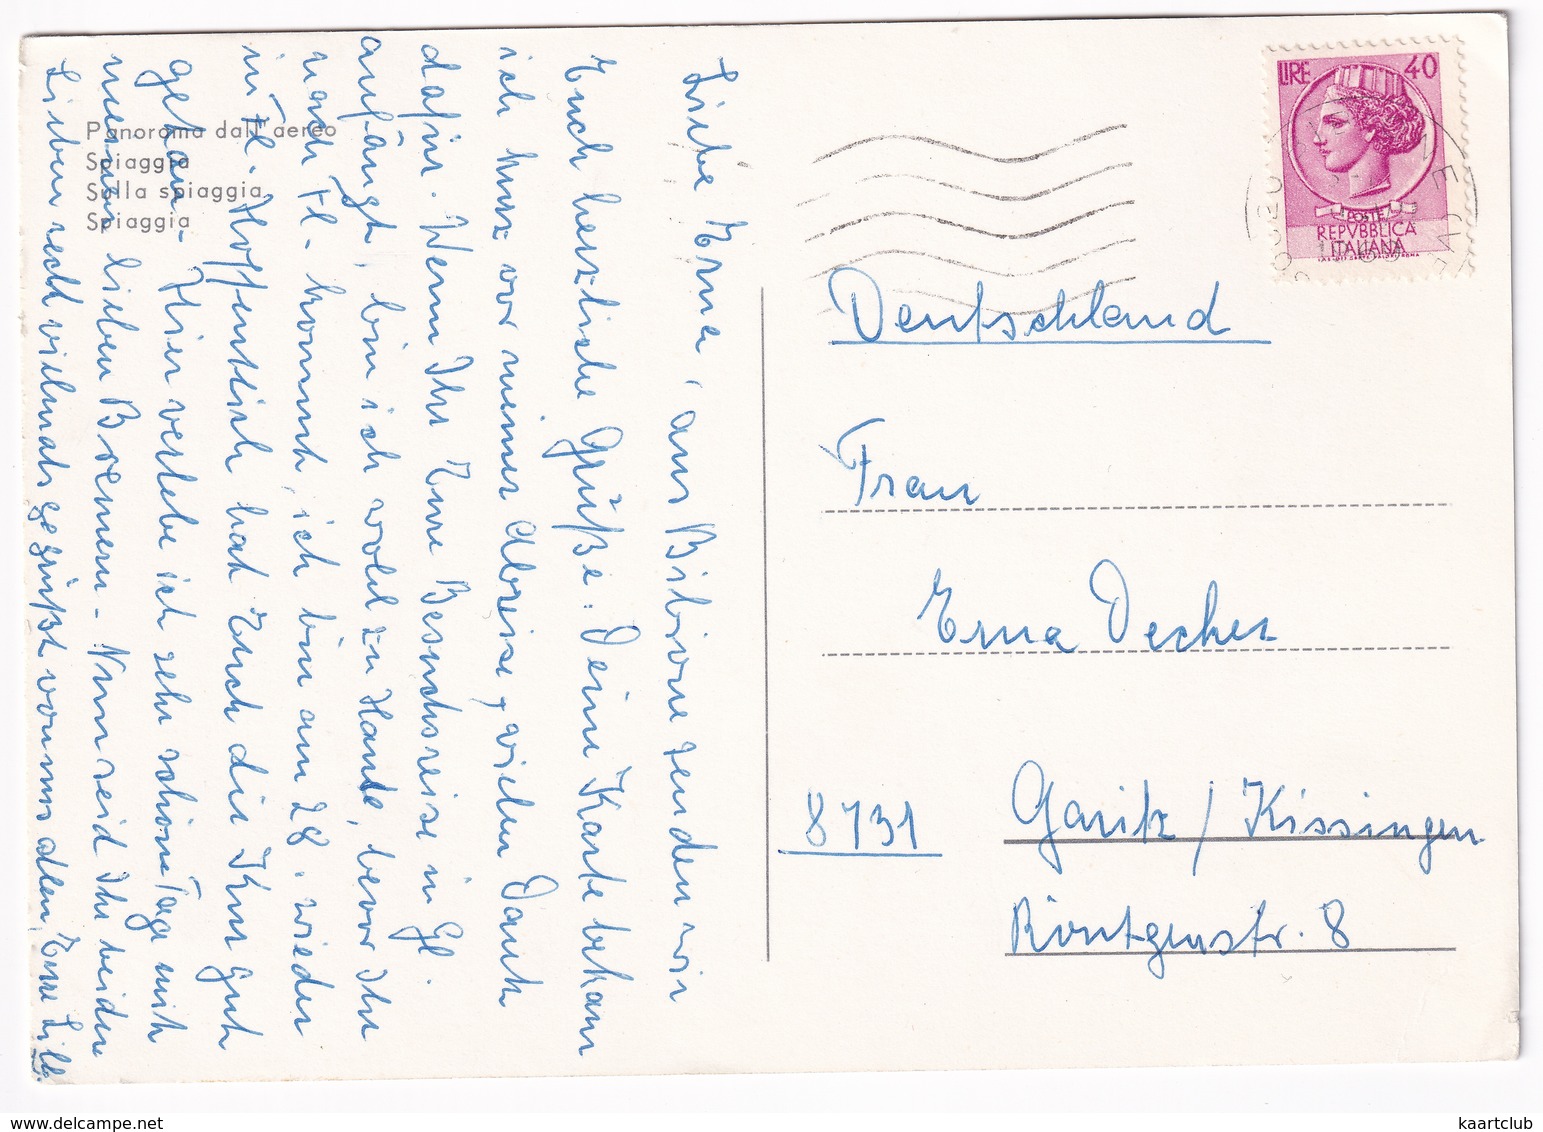 Panorama dall'aereo
Spiaggia
Sulla spiaggia
Spiaggia
Liebe Erna, aus Bibione senden wir
Euch herzliche Grüße. Deine Karte bekam
ich kurz vor meiner Abreise, vielen Dank
dafür. Wenn Ihr Eure Besuchsreise in Gl.
anfängt, bin ich wohl zu Hause, bevor Ihr
nach Fl. kommt, ich bin am 28. wieder
in Fl. Hoffentlich hat Euch die Kur gut
getan. Hier verlebe ich sehr schöne Tage mit
meinen lieben Bremern. Nun seid Ihr beiden
Lieben recht vielmals gegrüßt von uns allen, Eure Lilli
LIRE 40
POSTE
REPVBBLICA
ITALIANA
Deutschland
Frau
Erna Decker
8731 Garitz / Kissingen
Röntgenstr. 8
kaartclub / delcampe.net